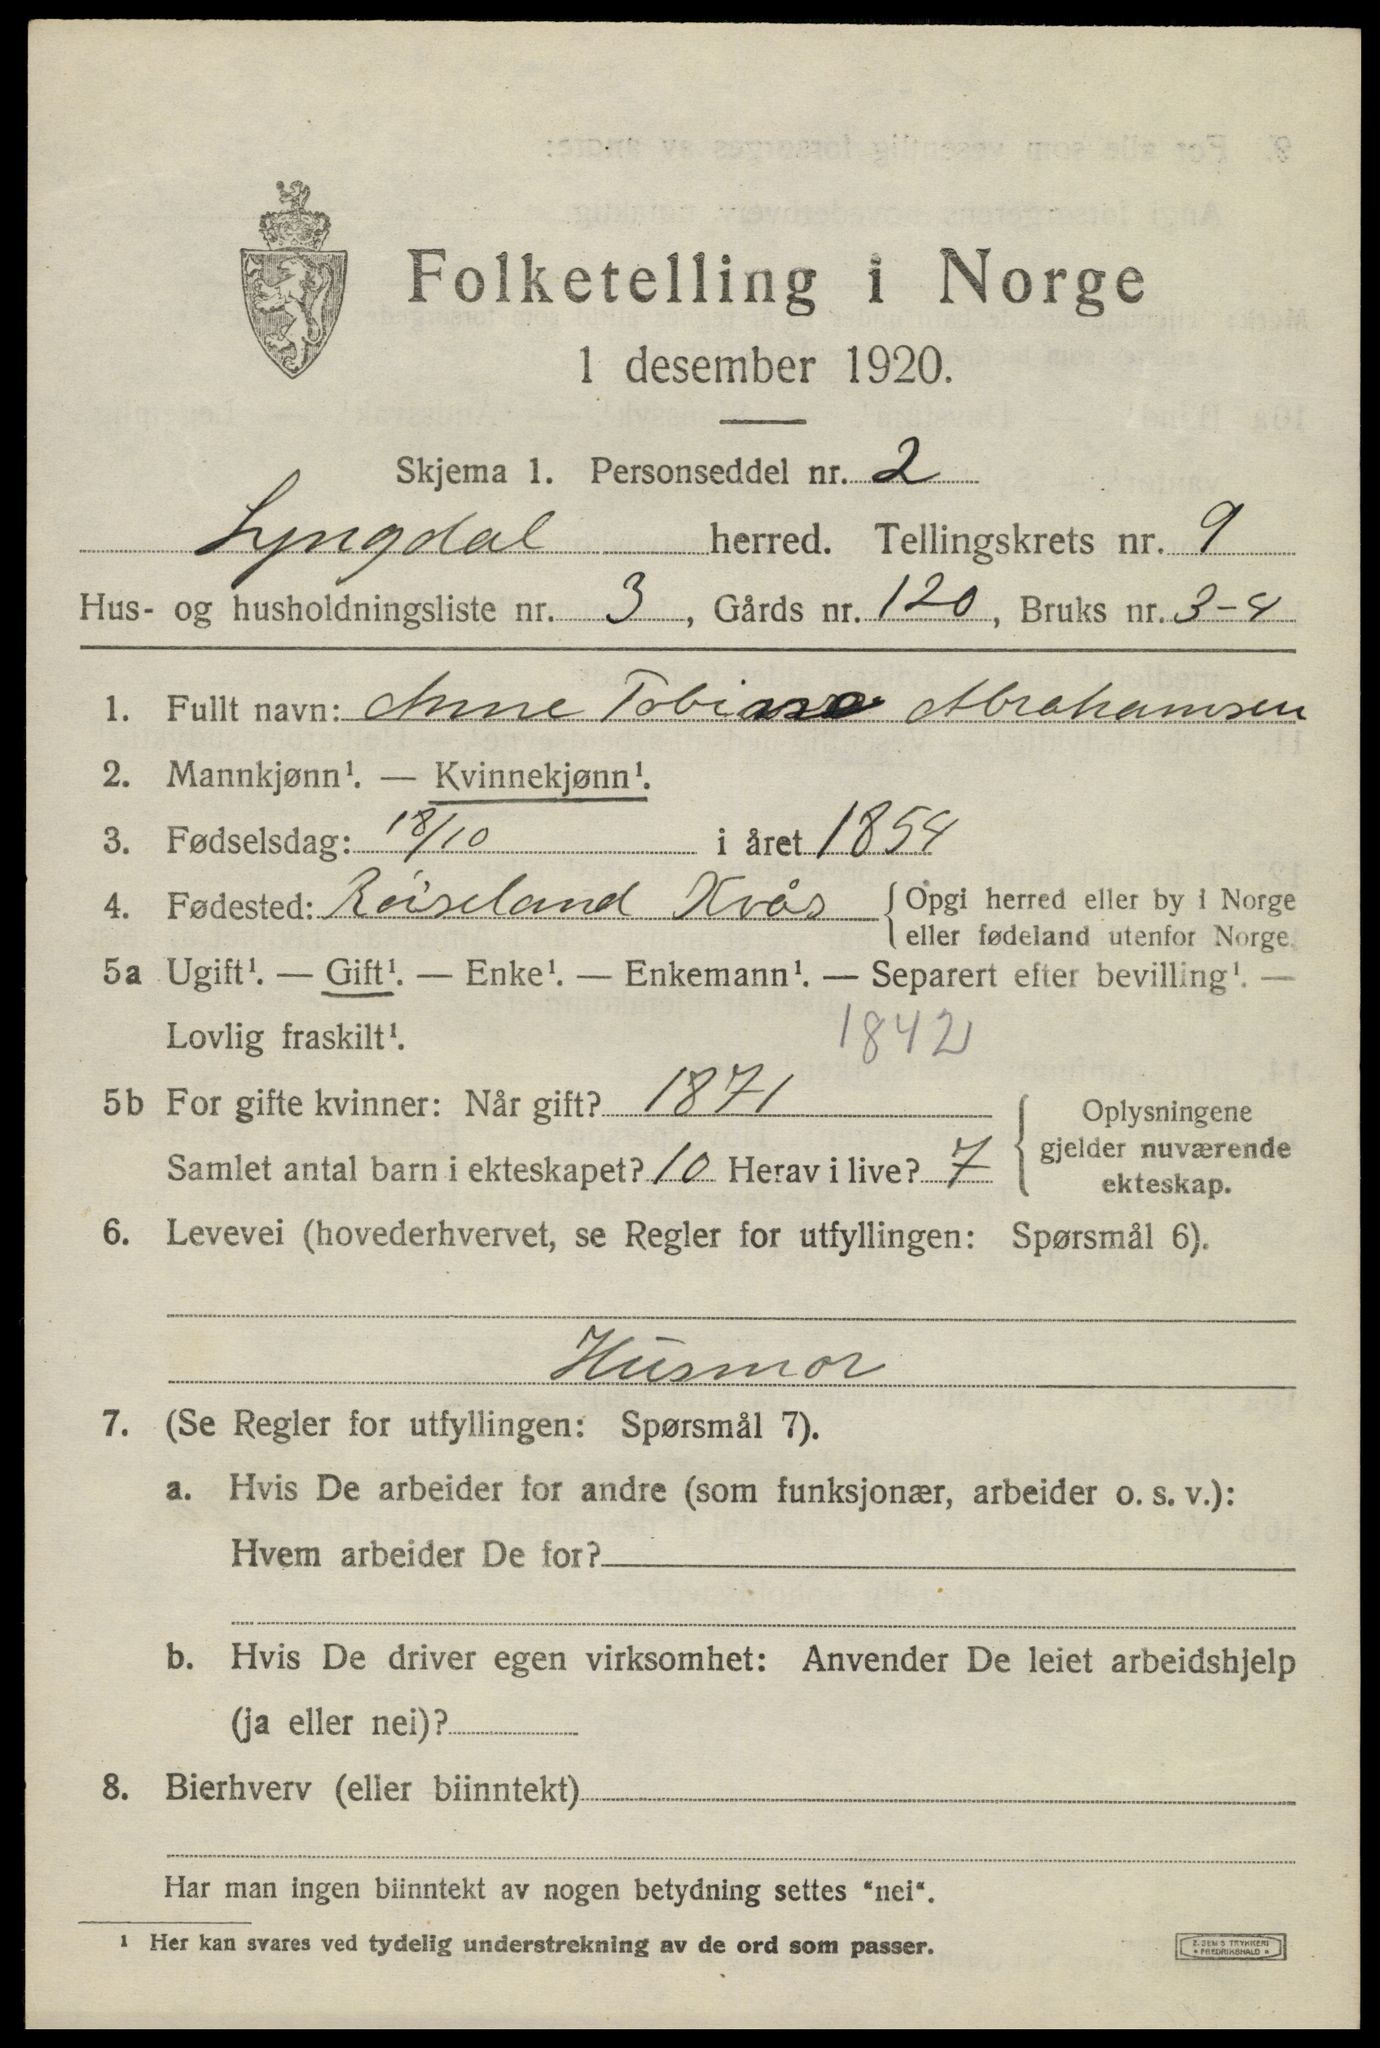 Folketelling i Norge
1 desember 1920.
Skjema 1. Personseddel nr. 2
Lyngdal herred. Tellingskrets nr. 9
Hus- og husholdningsliste nr. 3, Gårds nr. 120, Bruks nr. 3-4
1. Fullt navn: Anne Abrahamsen
2. Mannkjønn¹. — Kvinnekjønn¹.
3. Fødselsdag: 18/10 i året 1854
4. Fødested: Røiseland Kvås { Opgi herred eller by i Norge
eller fødeland utenfor Norge.
5a Ugift¹. — Gift¹. — Enke¹. — Enkemann¹. — Separert efter bevilling¹. —
Lovlig fraskilt¹. 1842
5b For gifte kvinner: Når gift? 1871
Samlet antal barn i ekteskapet? 10 Herav i live? 7
{ Oplysningene
gjelder nuværende
ekteskap.
6. Levevei (hovederhvervet, se Regler for utfyllingen: Spørsmål 6).
Husmor
7. (Se Regler for utfyllingen: Spørsmål 7).
a. Hvis De arbeider for andre (som funksjonær, arbeider o. s. v.):
Hvem arbeider De for?
b. Hvis De driver egen virksomhet: Anvender De leiet arbeidshjelp
(ja eller nei)?
8. Bierhverv (eller biinntekt)
Har man ingen biinntekt av nogen betydning settes "nei".
¹ Her kan svares ved tydelig understrekning av de ord som passer.
E. SEM'S TRYKKERI
• FREDRIKSHALD •